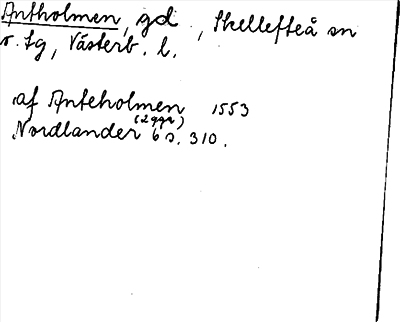 Antholmen, gd, Skellefteå sn
o. tg, Västerb. l.
af Anteholmen 1553
(2 ggr)
Nordlander 6 s. 310.